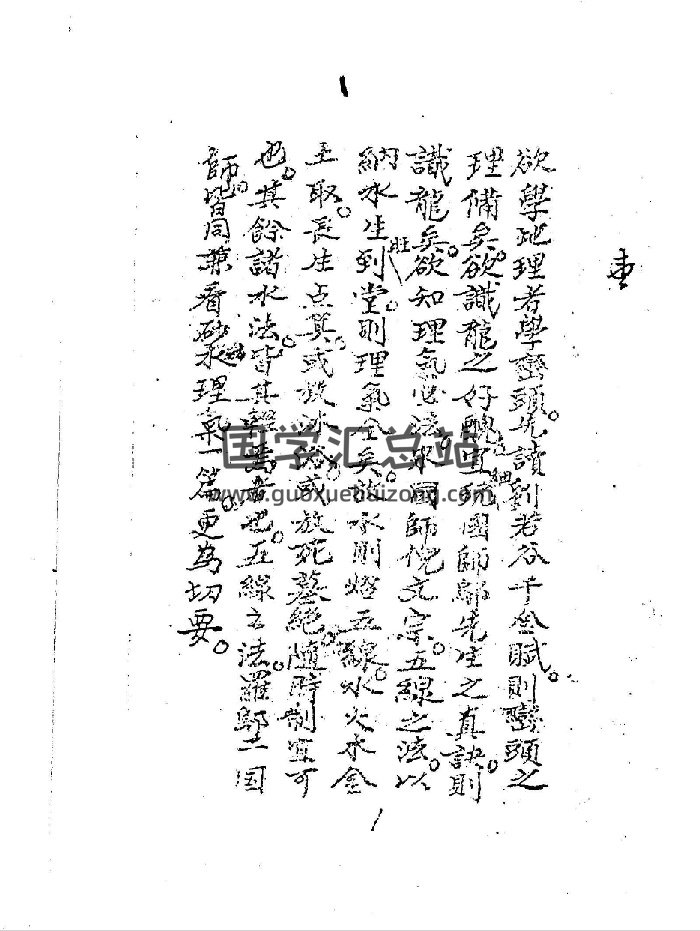 欲學地理者學巒頭。先讀劉若谷千金賦。則巒頭之
理備矣。欲識龍之好醜宜細玩國師鄔先生之真訣。則
識龍矣。欲知理氣必法國師倪文宗。五線之法。以
納水生旺到堂。則理氣全矣。放水則燈五線。水火木金
土取長生点算。或放沐浴或放死墓絕。隨時制宜可
也。其餘諸水法。皆其也。五線之法。羅鄔二国
師皆同兼看砂水理氣一篇。更為切要。
国学汇总站
www.guoxuehuizong.com